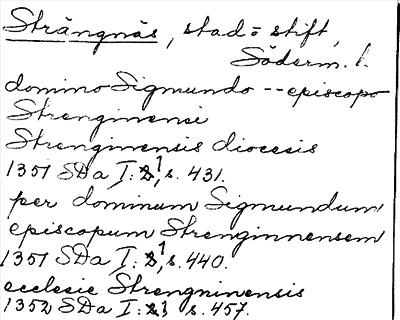 Strängnäs, stad o stift,
Söderm. l.
domino Sigmundo -- episcopo
Strenginensi
Strenginensis diocesis
1351 SDa I: 1, s. 431.
per dominum Sigmundum
episcopum Strenginnensem
1351 SDa I: 1, s. 440.
ecclesie Strengninensis
1352 SDa I: 1 s. 457.